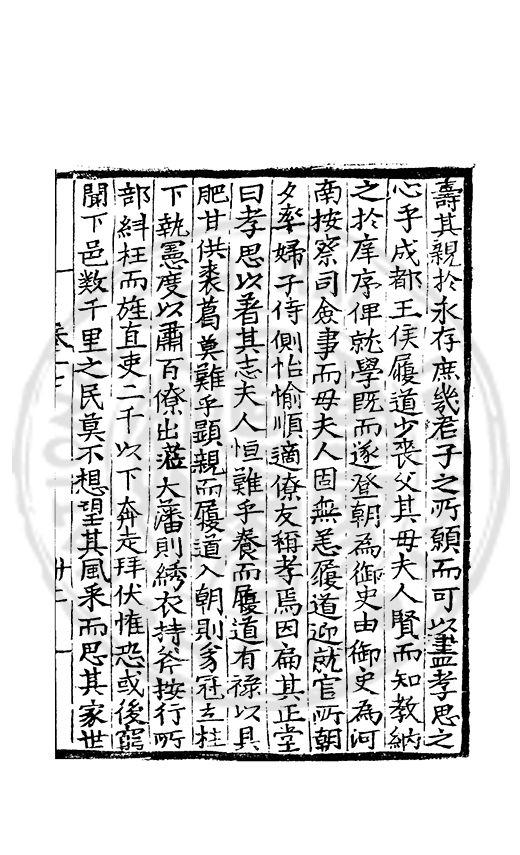 壽其親於永存庶幾君子之所願而可以盡孝思之
心乎成都王侯履道少喪父其母夫人賢而知教納
之於庠序俾就學既而遂登朝為御史由御史為河
南按察司僉事而母夫人固無恙履道迎就官所朝
夕率婦子侍側怡愉順適僚友稱孝焉因扁其正堂
曰孝思以著其志夫人恒難乎養而履道有祿以具
肥甘供裘葛奠難乎顕親而履道入朝則豸冠立柱
下執憲度以肅百僚出蒞大藩則綉衣持斧按行所
部糾枉而旌直吏二千以下奔走拜伏惟恐或後窮
閻下邑数千里之民莫不想望其風采而思其家世
卷二十
廿二